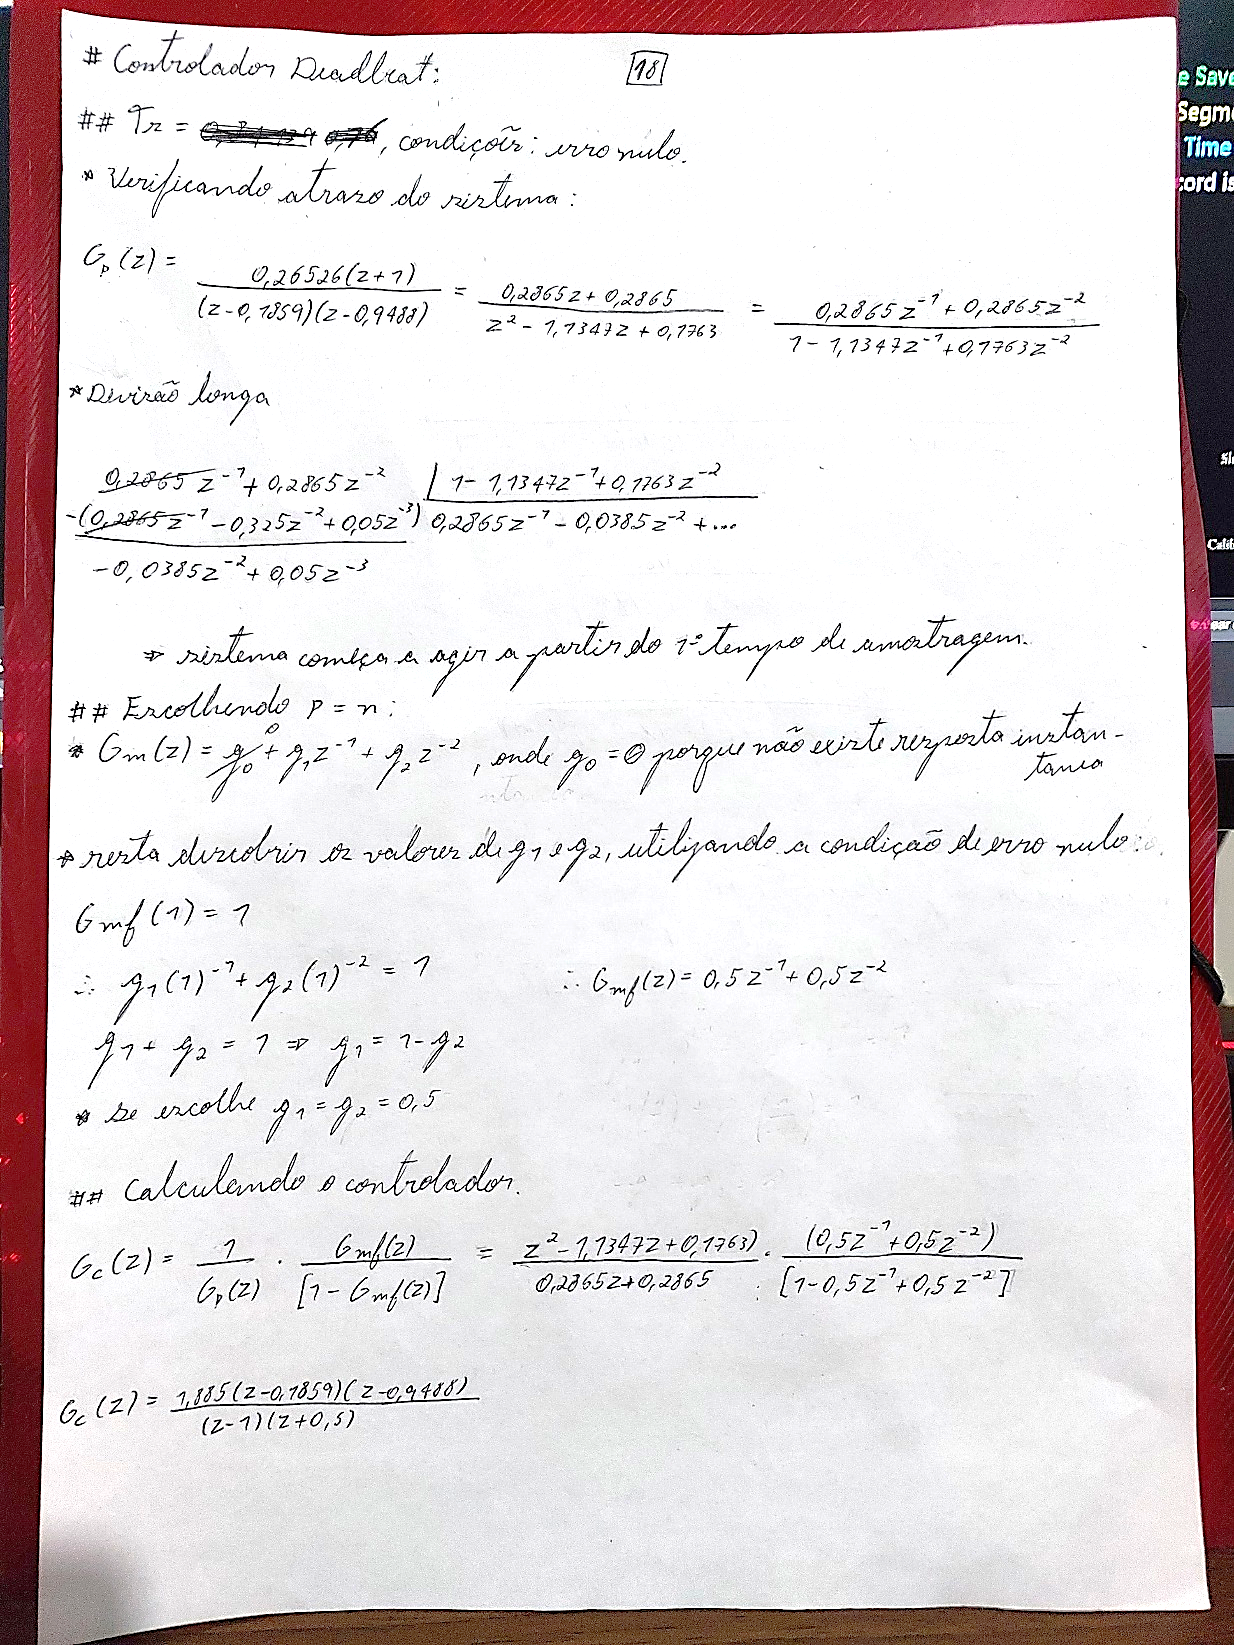 # Controlador Deadbeat: 18
## Tr = , condições: erro nulo.
* Verificando atrazo do sistema:
Gp(z) = 0,26526(z+1) / (z-0,1859)(z-0,9488) = 0,2865z + 0,2865 / z² - 1,1347z + 0,1763 = 0,2865z⁻¹ + 0,2865z⁻² / 1 - 1,1347z⁻¹ + 0,1763z⁻²
* Divisão longa
0,2865z⁻¹ + 0,2865z⁻² | 1 - 1,1347z⁻¹ + 0,1763z⁻²
-(0,2865z⁻¹ - 0,325z⁻² + 0,05z⁻³) 0,2865z⁻¹ - 0,0385z⁻² + ...
-0,0385z⁻² + 0,05z⁻³
⇒ sistema começa a agir a partir do 1º tempo de amostragem.
## Escolhendo p = n:
* Gm(z) = g₀ + g₁z⁻¹ + g₂z⁻², onde g₀ = 0 porque não existe resposta instan-
tanea
* resta descobrir os valores de g1 e g2, utilizando a condição de erro nulo:
Gmf(1) = 1
∴ g₁(1)⁻¹ + g₂(1)⁻² = 1 ∴ Gmf(z) = 0,5z⁻¹ + 0,5z⁻²
g1 + g₂ = 1 ⇒ g₁ = 1 - g2
* se escolhe g₁ = g₂ = 0,5
## Calculando o controlador.
Gc(z) = 1 / Gp(z) · Gmf(z) / [1 - Gmf(z)] = z² - 1,1347z + 0,1763) / 0,2865z + 0,2865 · (0,5z⁻¹ + 0,5z⁻²) / [1 - 0,5z⁻¹ + 0,5z⁻²]
Gc(z) = 1,885(z-0,1859)(z-0,9488) / (z-1)(z+0,5)